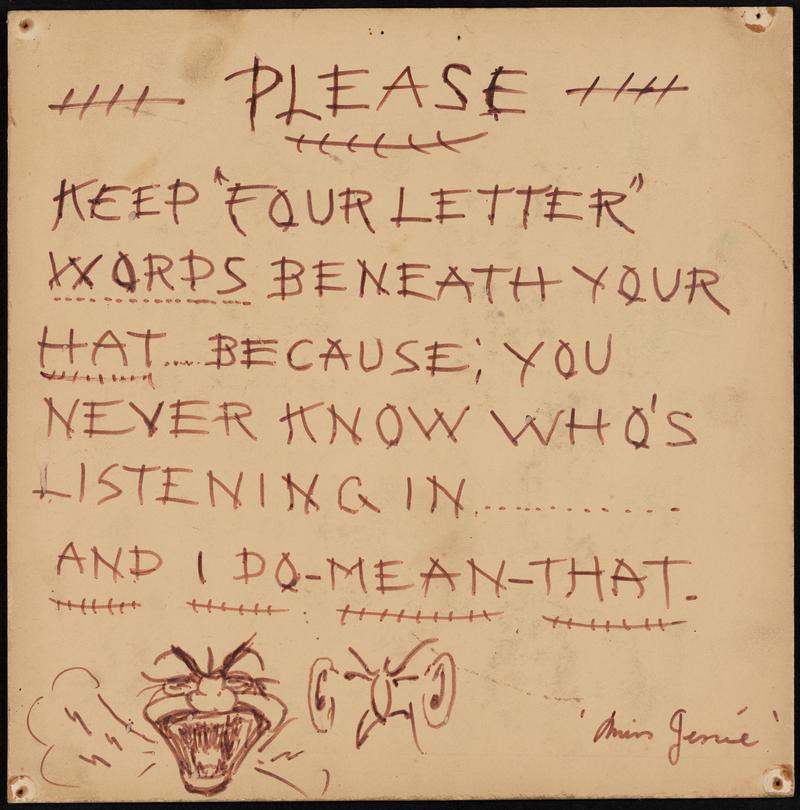 PLEASE
KEEP "FOUR LETTER"
WORDS BENEATH YOUR
HAT.... BECAUSE; YOU
NEVER KNOW WHO'S
LISTENING IN..............
AND I DO-MEAN-THAT.
'Miss Genie'